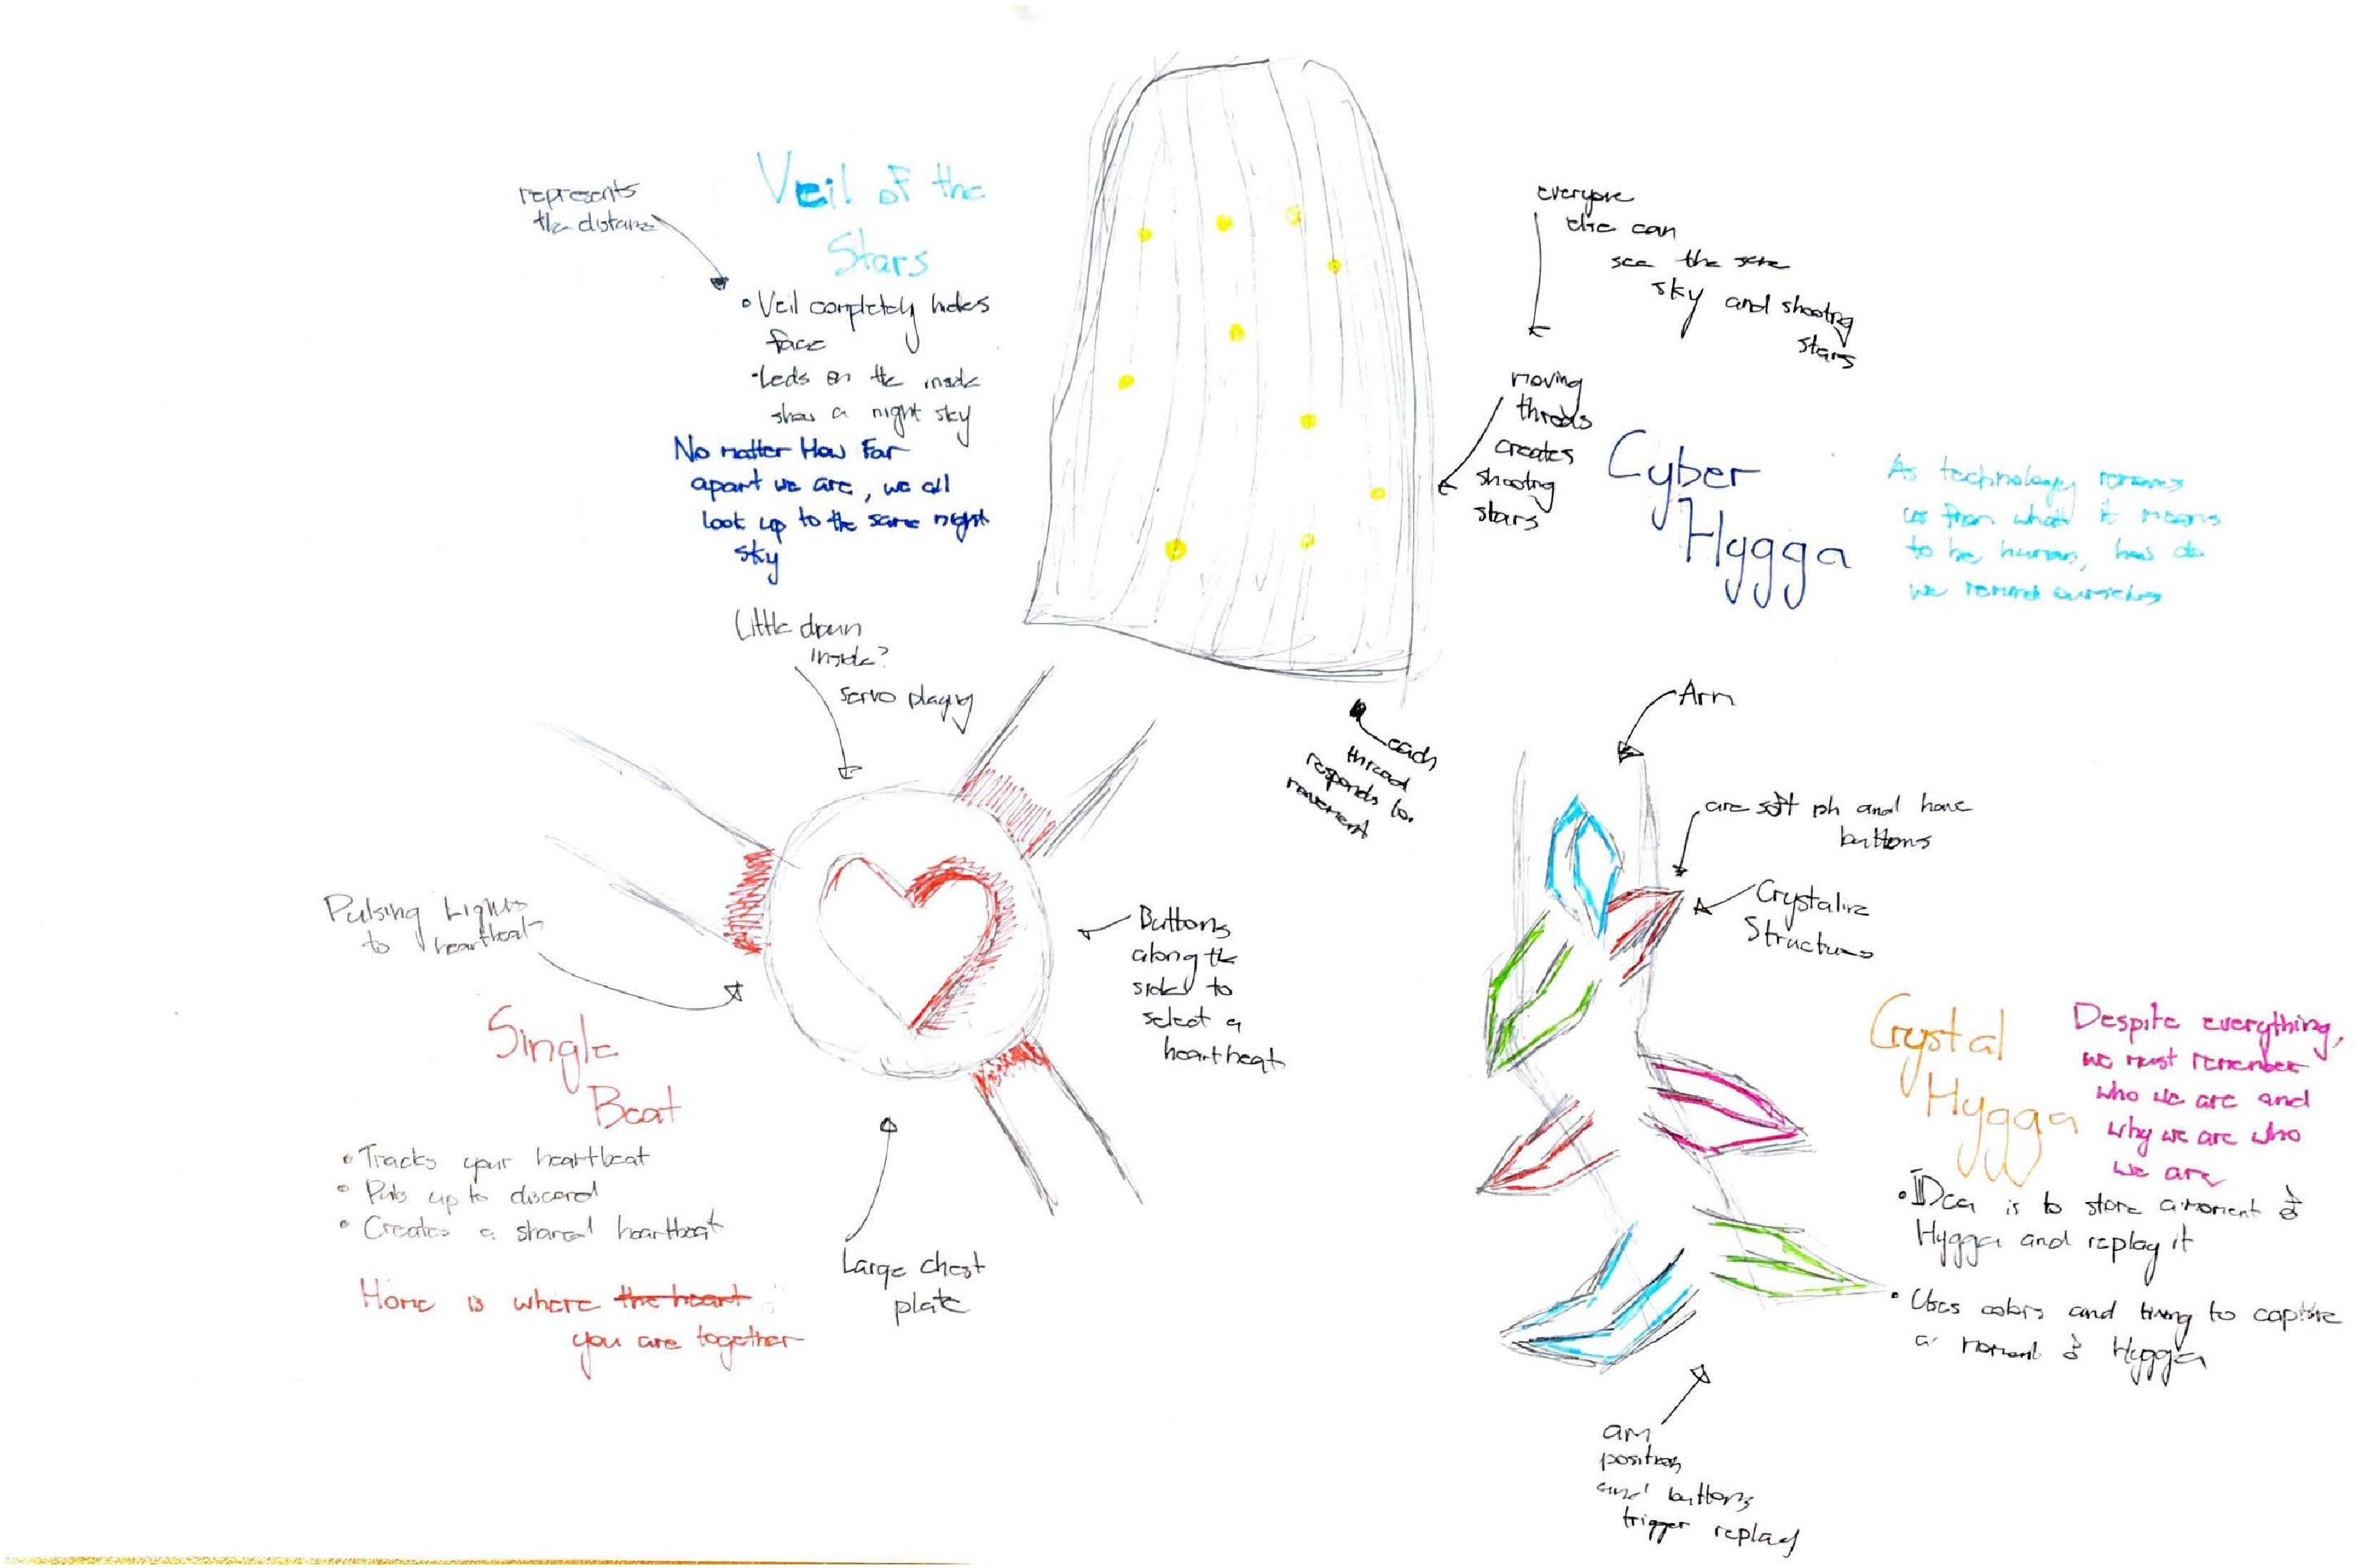 represents
the distance
Veil of the
Stars
• Veil completely hides
face
• Leds on the inside
show a night sky
No matter How Far
apart we are, we all
look up to the same night
sky
everyone
else can
see the same
sky and shooting
stars
moving
threds
creates
shooting
stars
each
thread
responds to
movement
Cyber
Hygga
As technology removes
us from what it means
to be human, how do
we remind ourselves
Little drum
inside?
servo playing
Pulsing Lights
to heartbeat
Buttons
along the
side to
select a
heartbeat
Single
Beat
• Tracks your heartbeat
• Puts up to discord
• Creates a shared heartbeat
Home is where the heart is
you are together
Large chest
plate
Arm
are soft ph and have
buttons
Crystaline
Structures
Crystal
Hygga
Despite everything,
we must remember
who we are and
why we are who
we are
• IDea is to store a moment of
Hygga and replay it
• Uses colors and timing to capture
a moment of Hygga
arm
position
and buttons
trigger replay